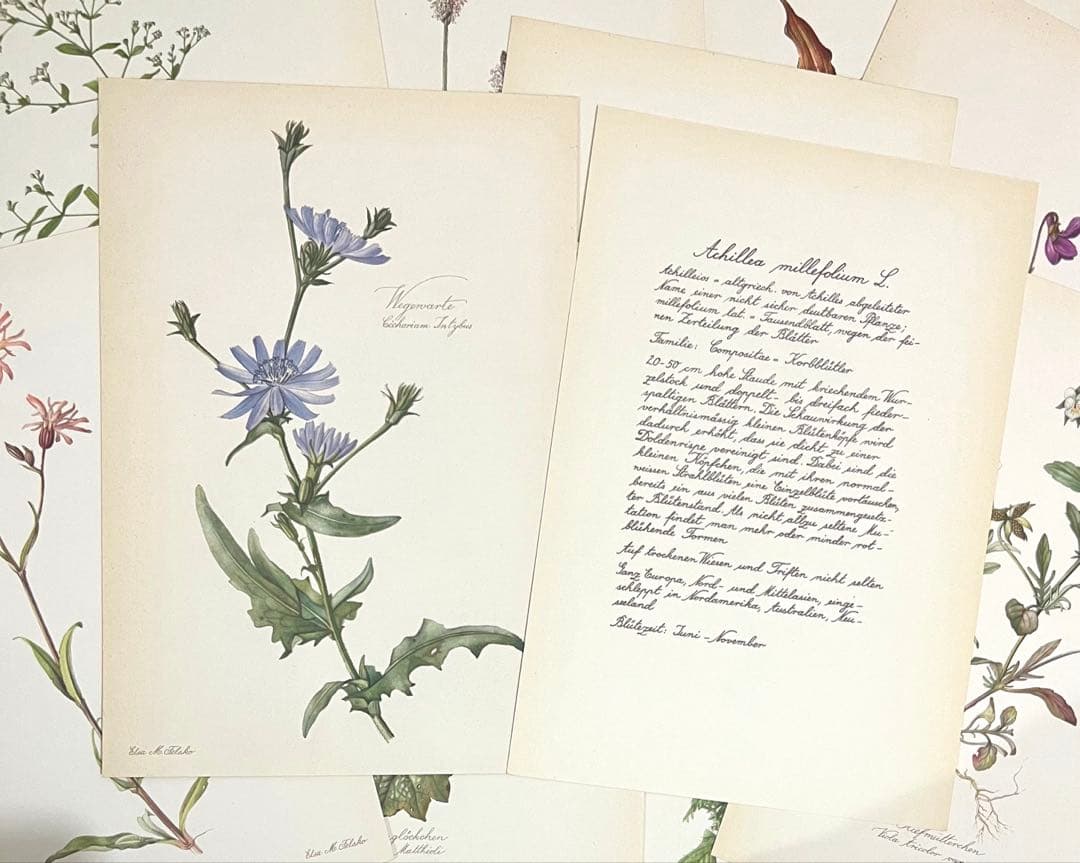 Wegewarte
Cichorium Intybus
Elsa M. Felsko
Achillea millefolium L.
Achilleios = altgriech. von Achilles abgeleiteter
Name einer nicht sicher deutbaren Pflanze;
millefolium lat. = Tausendblatt, wegen der fei-
nen Zerteilung der Blätter
Familie: Compositae = Korbblütler
20-50 cm hohe Staude mit kriechendem Wur-
zelstock und doppelt- bis dreifach fieder-
spaltigen Blättern. Die Schauwirkung der
verhältnismässig kleinen Blütenköpfe wird
dadurch erhöht, dass sie dicht zu einer
Doldenrispe vereinigt sind. Dabei sind die
kleinen Köpfchen, die mit ihren normal-
weissen Strahlblüten eine Einzelblüte vortäuschen,
bereits ein aus vielen Blüten zusammengesetz-
ter Blütenstand. Als nicht allzu seltene Mu-
tation findet man mehr oder minder rot-
blühende Formen
Auf trockenen Wiesen und Triften nicht selten
Ganz Europa, Nord- und Mittelasien, einge-
schleppt in Nordamerika, Australien, Neu-
seeland
Blütezeit: Juni - November
Elsa M. Felsko
glöckchen
Matthioli
Stiefmütterchen
Viola tricolor